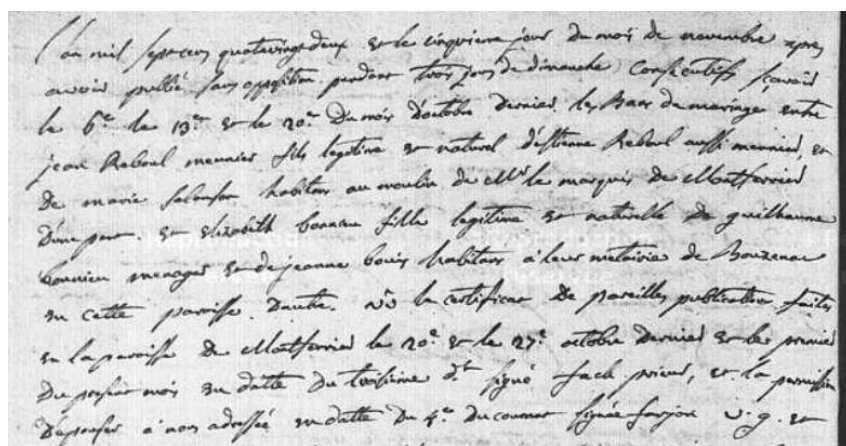 L'an mil sept cens quatrevingt deux et le cinquieme jour du mois de novembre apres
avoir publié sans opposition pendant trois jours de dimanche consecutifs sçavoir
le 6e. le 13e. et le 20e. du mois d'octobre dernier les Bans de mariage entre
jean Reboul meunier fils legitime et naturel d'Estienne Reboul aussi meunier, et
de marie habitans au moulin de Mr. le marquis de Montferrier
d'une part. et Elizabeth bonnieu fille legitime et naturelle de guilhaume
bonnieu menager et de jeanne bouis habitans à leur metairie de Bouzenac
en cette paroisse d'autre. vû le certificat de pareilles publications faites
en la paroisse de Montferrier le 20e. et le 27e. octobre dernier et le premier
du present mois en datte du troisieme dt. signé prieur, et la permission
d'epouser à nous adressée en datte du 4e. du courant signée farjon v. g. et